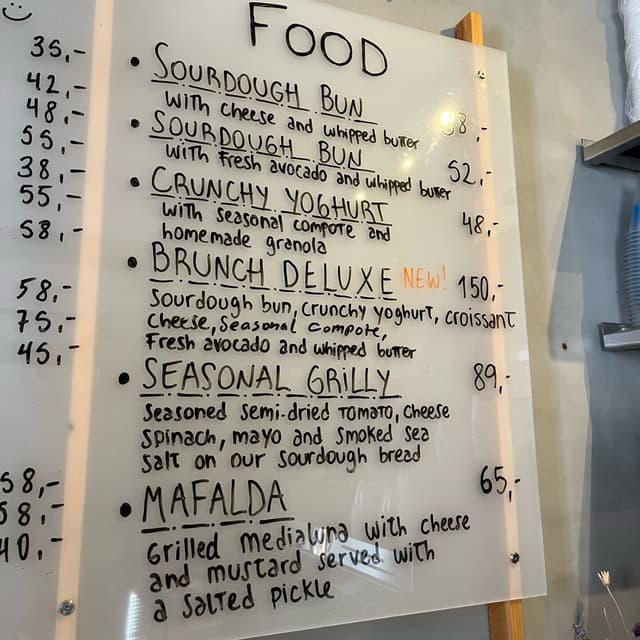 FOOD
35,-
42,-
48,-
55,-
38,-
55,-
58,-
58,-
75,-
45,-
58,-
58,-
40,-
• SOURDOUGH BUN
with cheese and whipped butter 38,-
• SOURDOUGH BUN
with fresh avocado and whipped butter 52,-
• CRUNCHY YOGHURT 48,-
with seasonal compote and
homemade granola
• BRUNCH DELUXE NEW! 150,-
Sourdough bun, crunchy yoghurt, croissant
Cheese, Seasonal compote,
Fresh avocado and whipped butter
• SEASONAL GRILLY 89,-
Seasoned semi-dried tomato, cheese
spinach, mayo and smoked sea
salt on our sourdough bread
• MAFALDA 65,-
Grilled medialuna with cheese
and mustard served with
a salted pickle